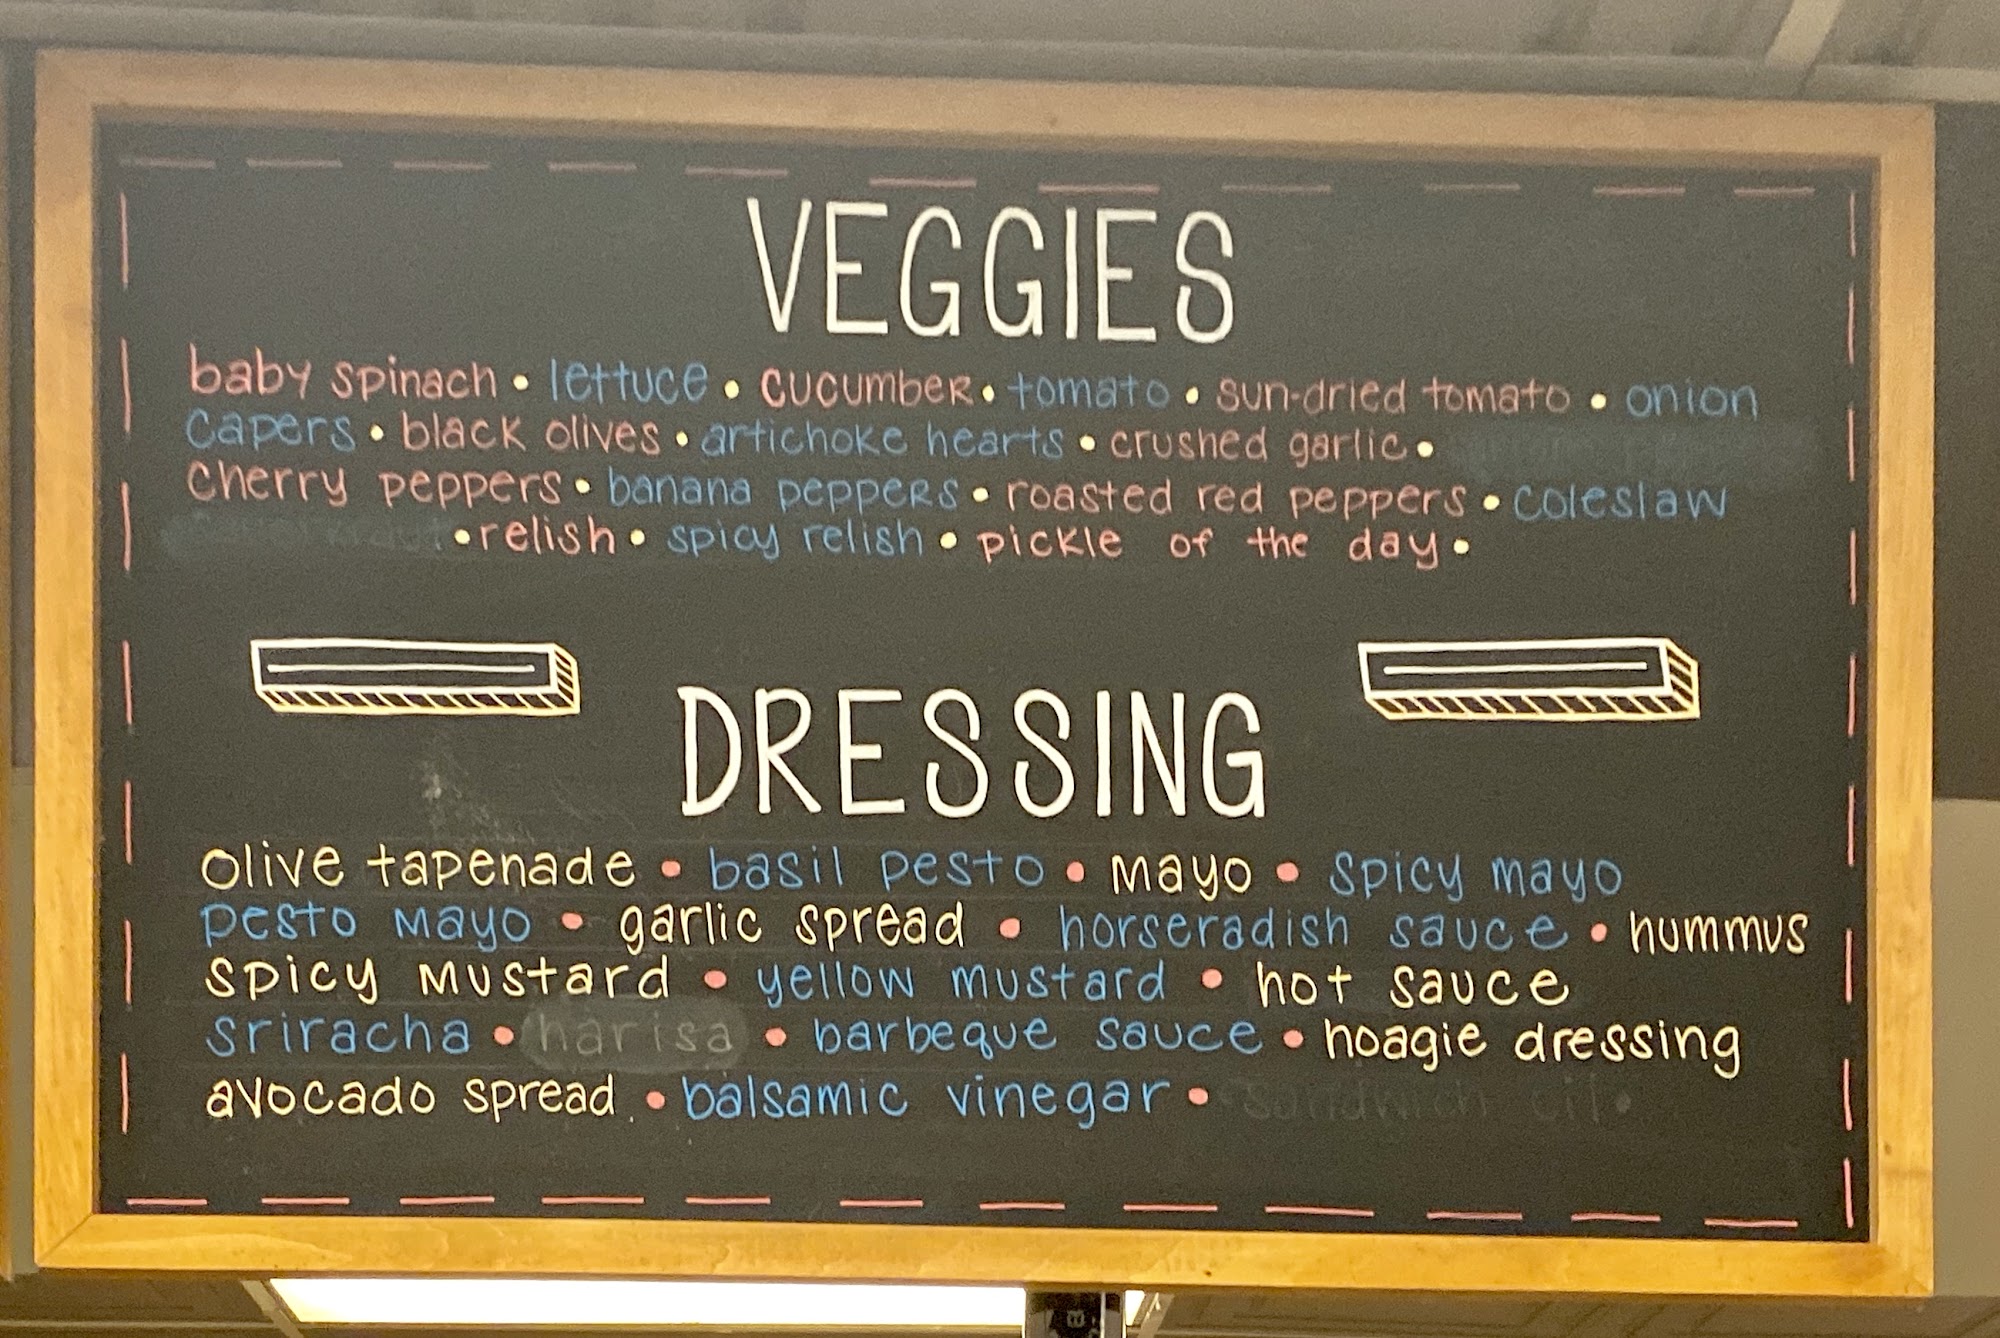 VEGGIES
baby spinach • lettuce • cucumber • tomato • sun-dried tomato • onion
capers • black olives • artichoke hearts • crushed garlic •
cherry peppers • banana peppers • roasted red peppers • coleslaw
• relish • spicy relish • pickle of the day •
DRESSING
olive tapenade • basil pesto • mayo • spicy mayo
pesto mayo • garlic spread • horseradish sauce • hummus
spicy mustard • yellow mustard • hot sauce
sriracha • harisa • barbeque sauce • hoagie dressing
avocado spread • balsamic vinegar • sandwich oil •